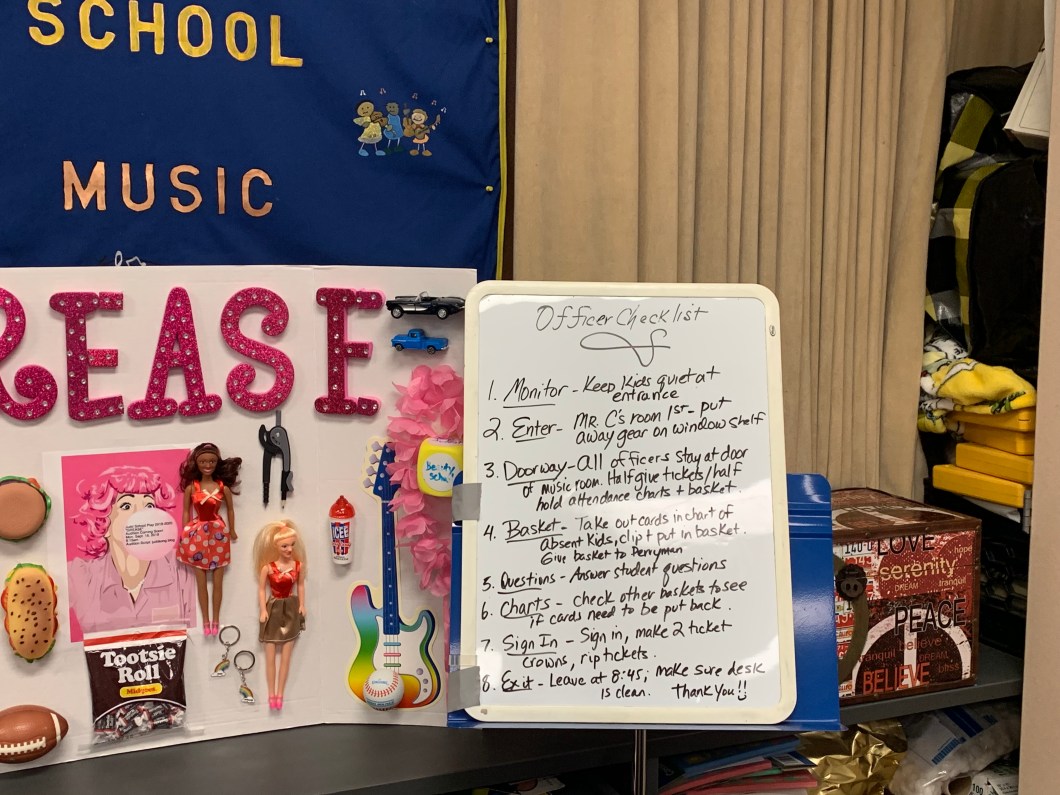 SCHOOL
MUSIC
REASE
Officer Checklist
1. Monitor - Keep Kids quiet at
entrance
2. Enter - MR. C's room 1st - put
away gear on window shelf
3. Doorway - All officers stay at door
of music room. Half give tickets/half
hold attendance charts + basket.
4. Basket - Take out cards in chart of
absent kids, clip + put in basket.
Give basket to Perryman
5. Questions - Answer student questions
6. Charts - check other baskets to see
if cards need to be put back.
7. Sign In - Sign in, make 2 ticket
crowns, rip tickets.
8. Exit - Leave at 8:45; make sure desk
is clean. Thank You!!
Beauty
School
ICEE
Tootsie
Roll
Midgees
LOVE
hope
serenity
DREAM
tranquil
PEACE
believe
tranquil
DREAM
BELIEVE
bliss